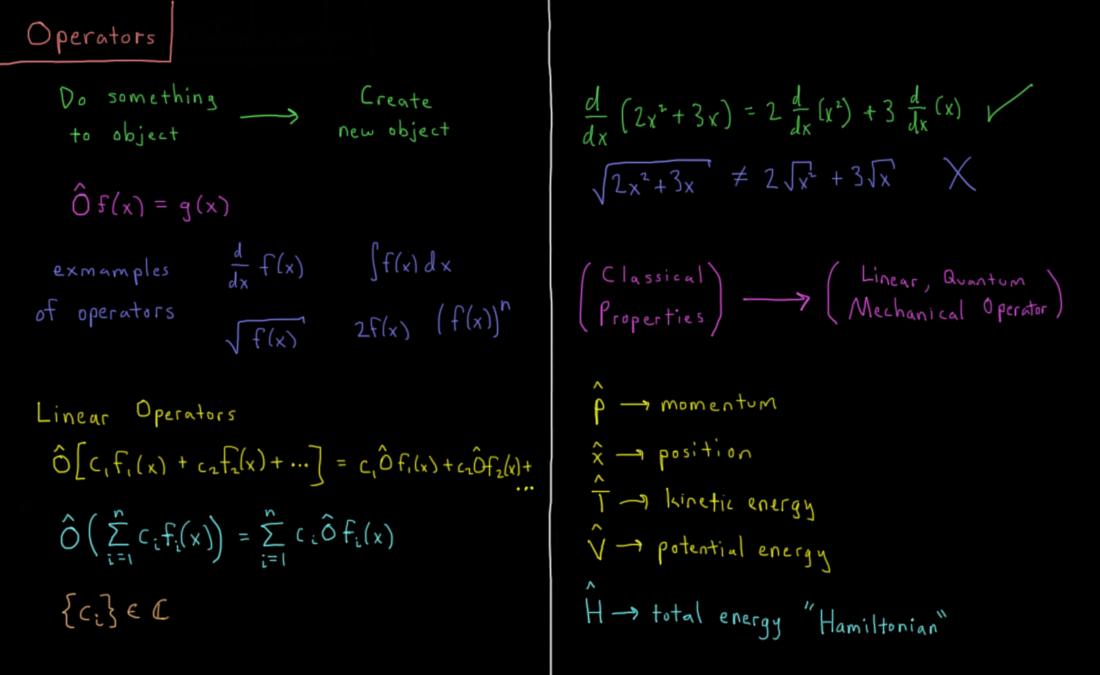 Operators
Do something
to object
⟶
Create
new object
Ô f(x) = g(x)
exmamples
of operators
d/dx f(x)
∫f(x) dx
√f(x)
2f(x)
(f(x))ⁿ
Linear Operators
Ô[c₁f₁(x) + c₂f₂(x) + ...] = c₁Ôf₁(x) + c₂Ôf₂(x) +
...
Ô(∑ⁿᵢ₌₁ cᵢfᵢ(x)) = ∑ⁿᵢ₌₁ cᵢÔfᵢ(x)
{cᵢ} ∈ ℂ
d/dx (2x² + 3x) = 2 d/dx (x²) + 3 d/dx (x) ✓
√(2x² + 3x) ≠ 2√x² + 3√x X
(Classical
Properties)
⟶
(Linear, Quantum
Mechanical Operator)
p̂ → momentum
x̂ → position
T̂ → kinetic energy
V̂ → potential energy
Ĥ → total energy "Hamiltonian"